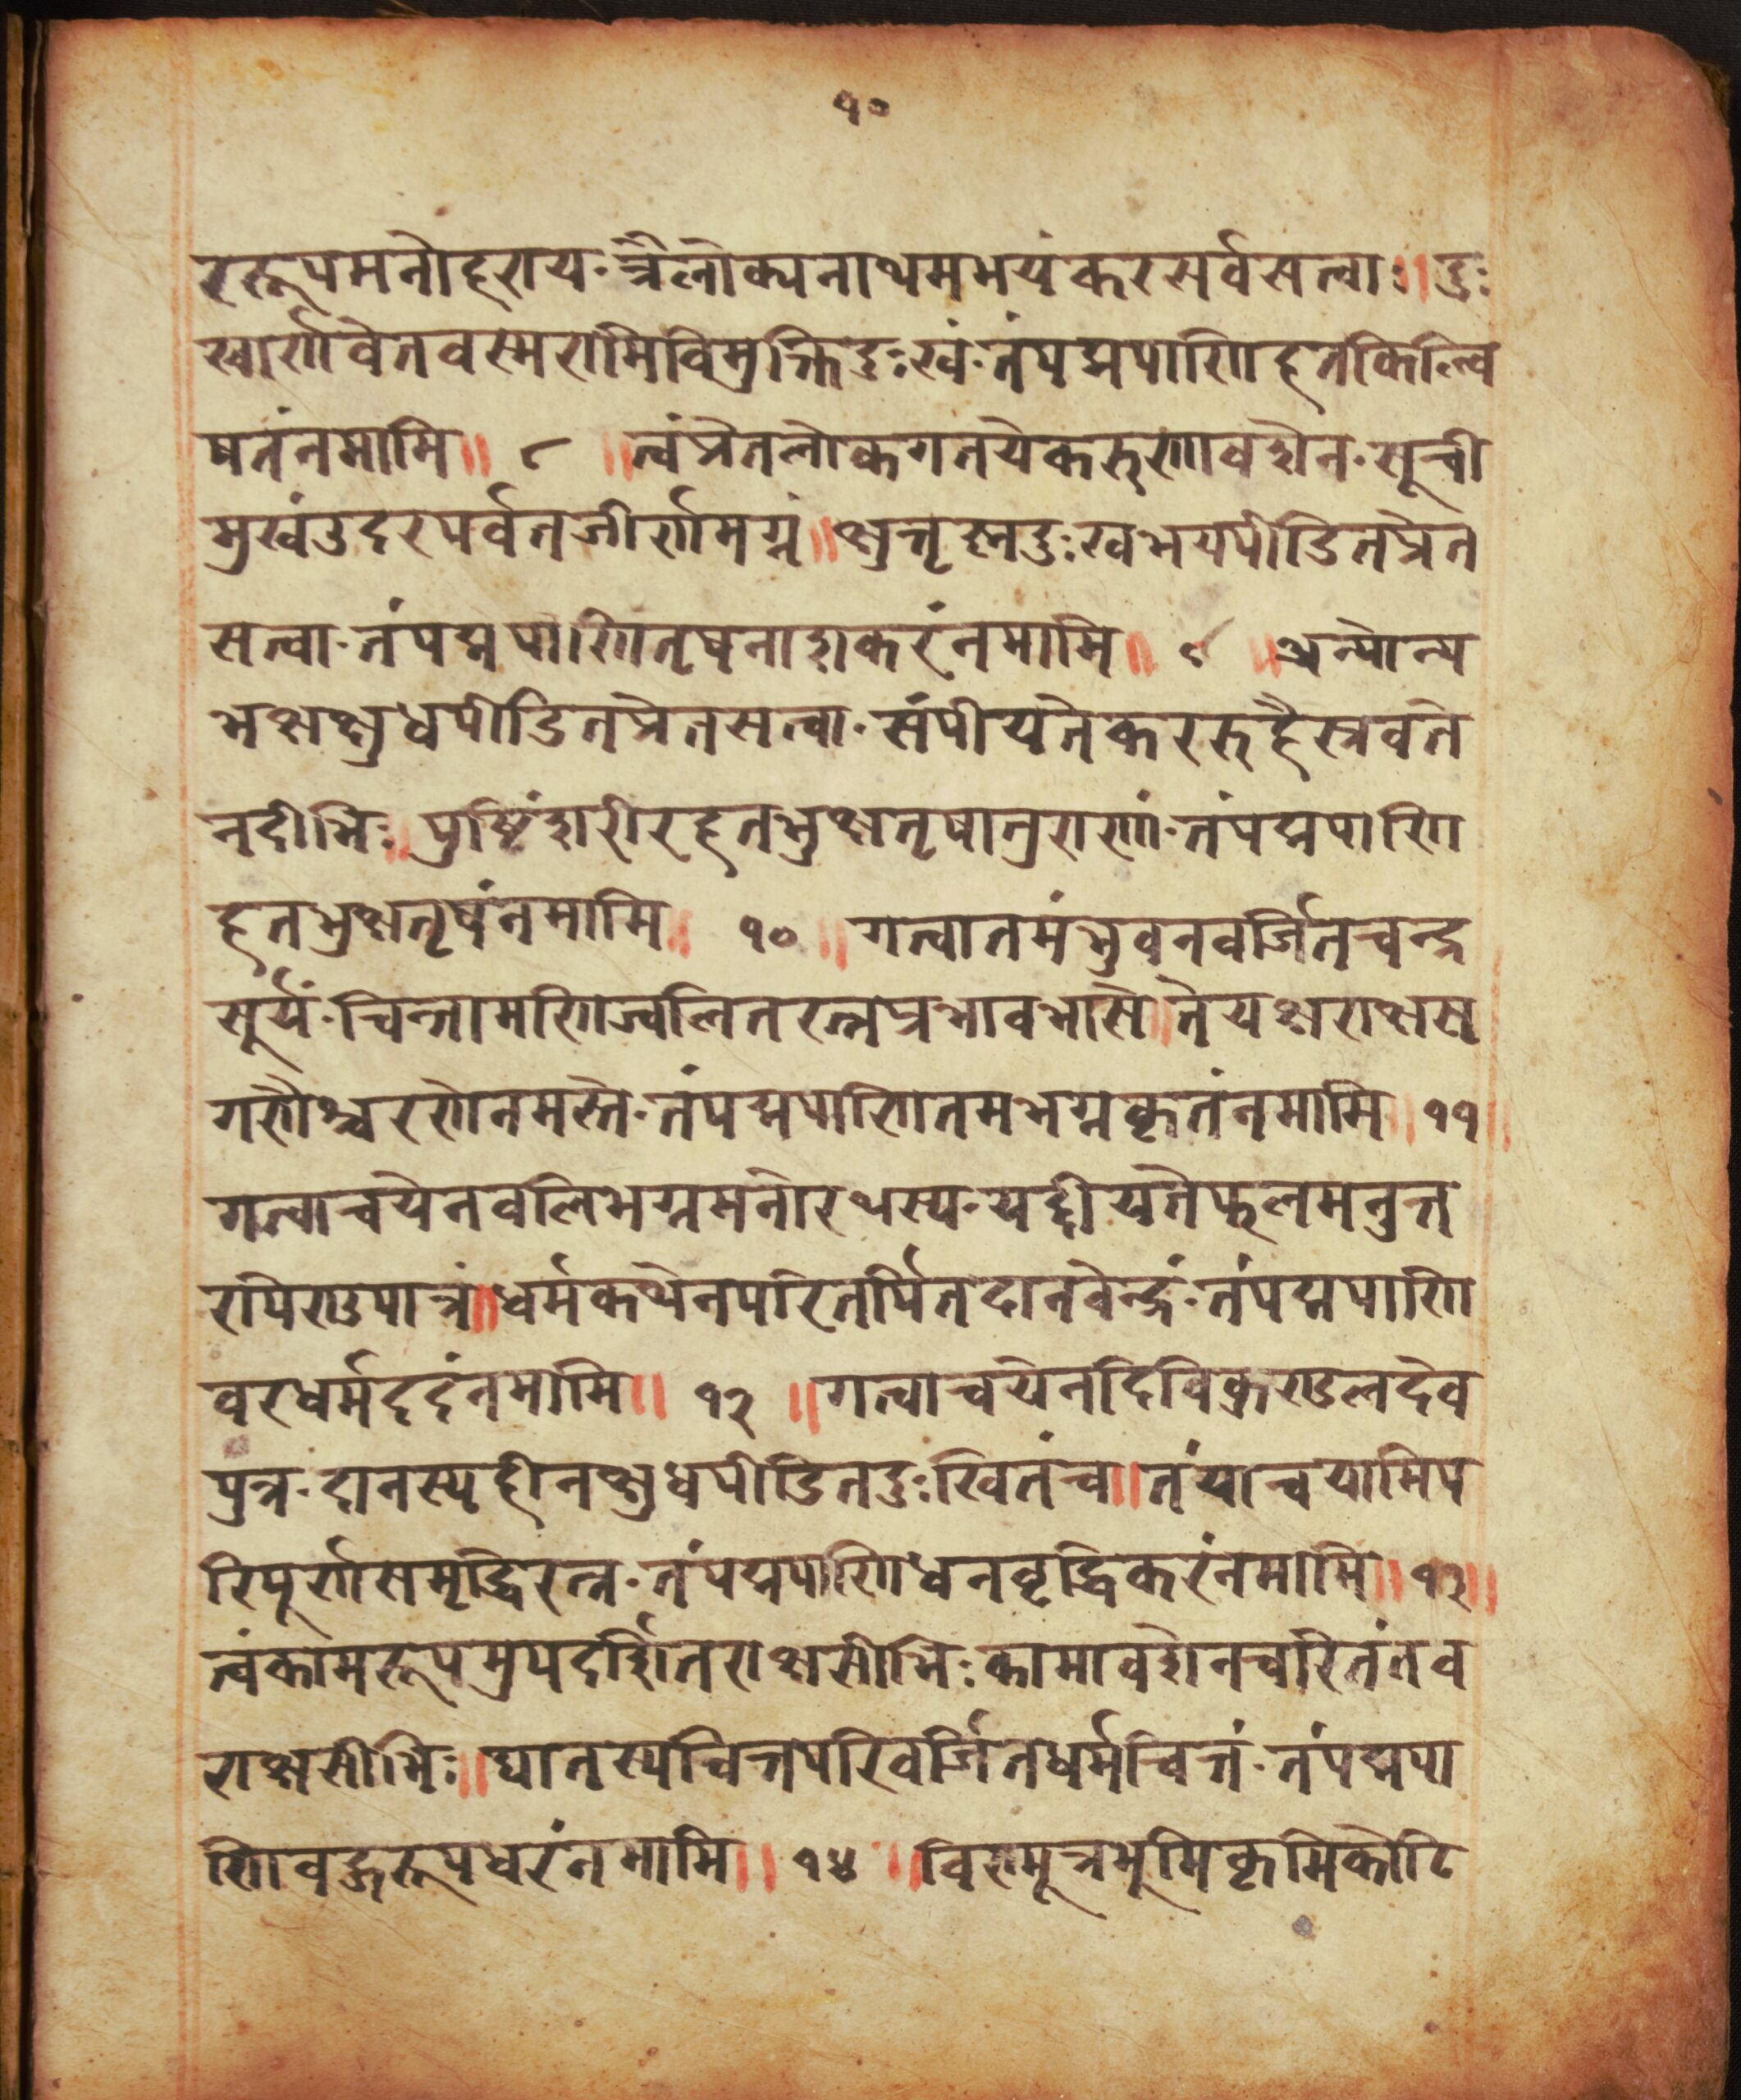 १०
ररूपमनोहराय॰त्रैलोक्यनाथमभयंकरसर्वसत्वाः॥दुः
खार्णवेतवस्मरामिविमुक्तिदुःखं॰तंपद्मपाणिहतकिल्वि
षतंनमामि॥ ८ ॥त्वंप्रेतलोकगतयेकरुणावशेन॰सूची
मुखंउदरपर्वतजीर्णमग्नं॥क्षुत्तृष्नदुःखभयपीडितप्रेत
सत्वा॰तंपद्मपाणितृषनाशकरंनमामि॥ ९ ॥अन्योन्य
भक्षक्षुधपीडितप्रेतसत्वा॰संपीयतेकररुहैस्त्रवते
नदीभिः॥पुष्टिंशरीरहतभुक्षतृषातुराणां॰तंपद्मपाणि
हतभुक्षतृषंनमामि॥ १० ॥गत्वातमंभुवनवर्जितचन्द्र
सूर्यं॰चिन्तामणिज्वलितरत्नप्रभावभासे॥तेयक्षराक्षस
गणैश्चरणेनमस्ते॰तंपद्मपाणितमभग्नकृतंनमामि॥११॥
गत्वाचयेनवलिभग्नमनोरथस्य॰यद्दीयतेफलमनुत्त
रपिण्डपात्रं॥धर्मकथेनपरितर्पितदानवेन्द्रं॰तंपद्मपाणि
वरधर्मददंनमामि॥ १२ ॥गत्वाचयेनदिविकुण्डलदेव
पुत्र॰दानस्यहीनक्षुधपीडितदुःखितंच॥तंयाचयामिप
रिपूर्णसमृद्धिरत्न॰तंपद्मपाणिधनवृद्धिकरंनमामि॥१३॥
त्वंकामरूपमुपदर्शितराक्षसीभिःकामावशेनचरितंतव
राक्षसीभिः॥घातस्यचित्तपरिवर्जितधर्मचित्तं॰तंपद्मपा
णिवद्भरूपधरंनमामि॥ १४ ॥विण्मूत्रभुमिकृमिकोटि